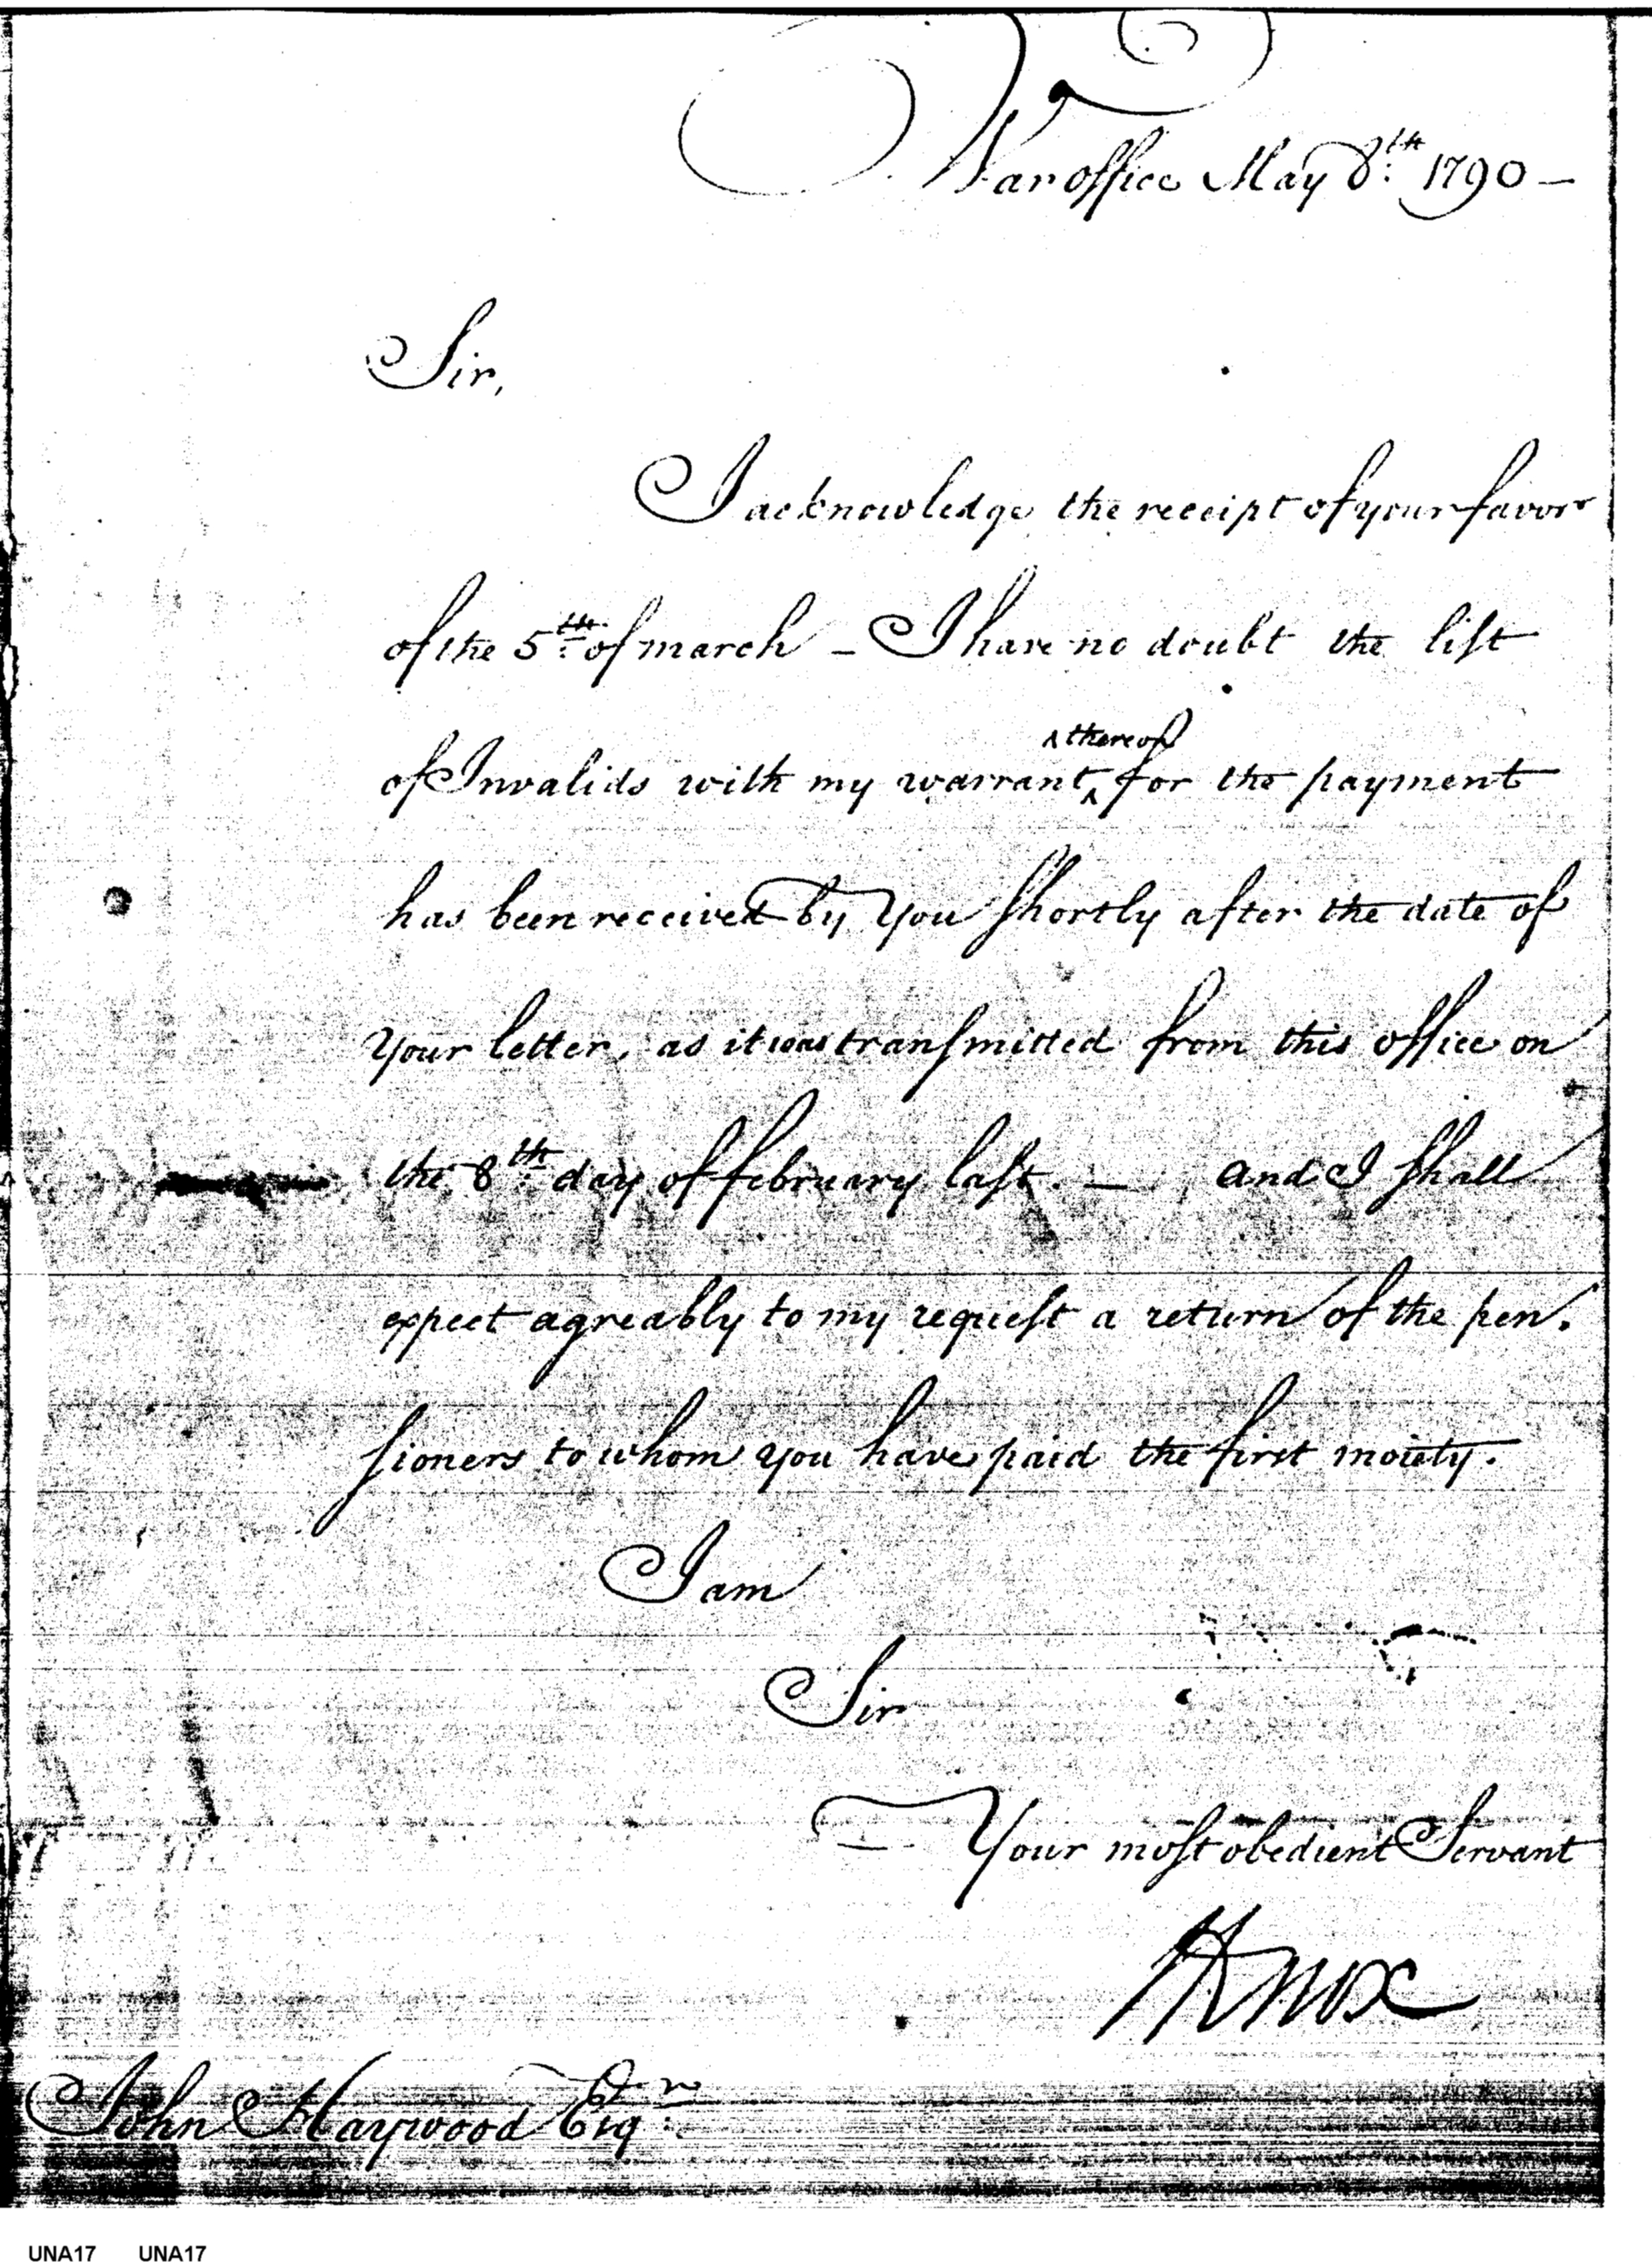 War office May 8th 1790 —
Sir,
I acknowledge the receipt of your favor
of the 5th of march — I have no doubt the list
^ thereof
of Invalids with my warrant ^ for the payment
has been received by you shortly after the date of
your letter, as it was transmitted from this office on
the 8th day of february last. — and I shall
expect agreably to my request a return of the pen.
sioners to whom you have paid the first moiety.
I am
Sir
Your most obedient Servant
HKnox
John Haywood Esqr
UNA17 UNA17